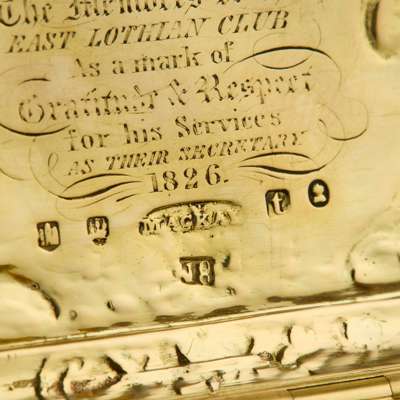 The Members of
EAST LOTHIAN CLUB
As a mark of
Gratitude & Respect
for his Services
AS THEIR SECRETARY
1826.
MACKAY
t
JH